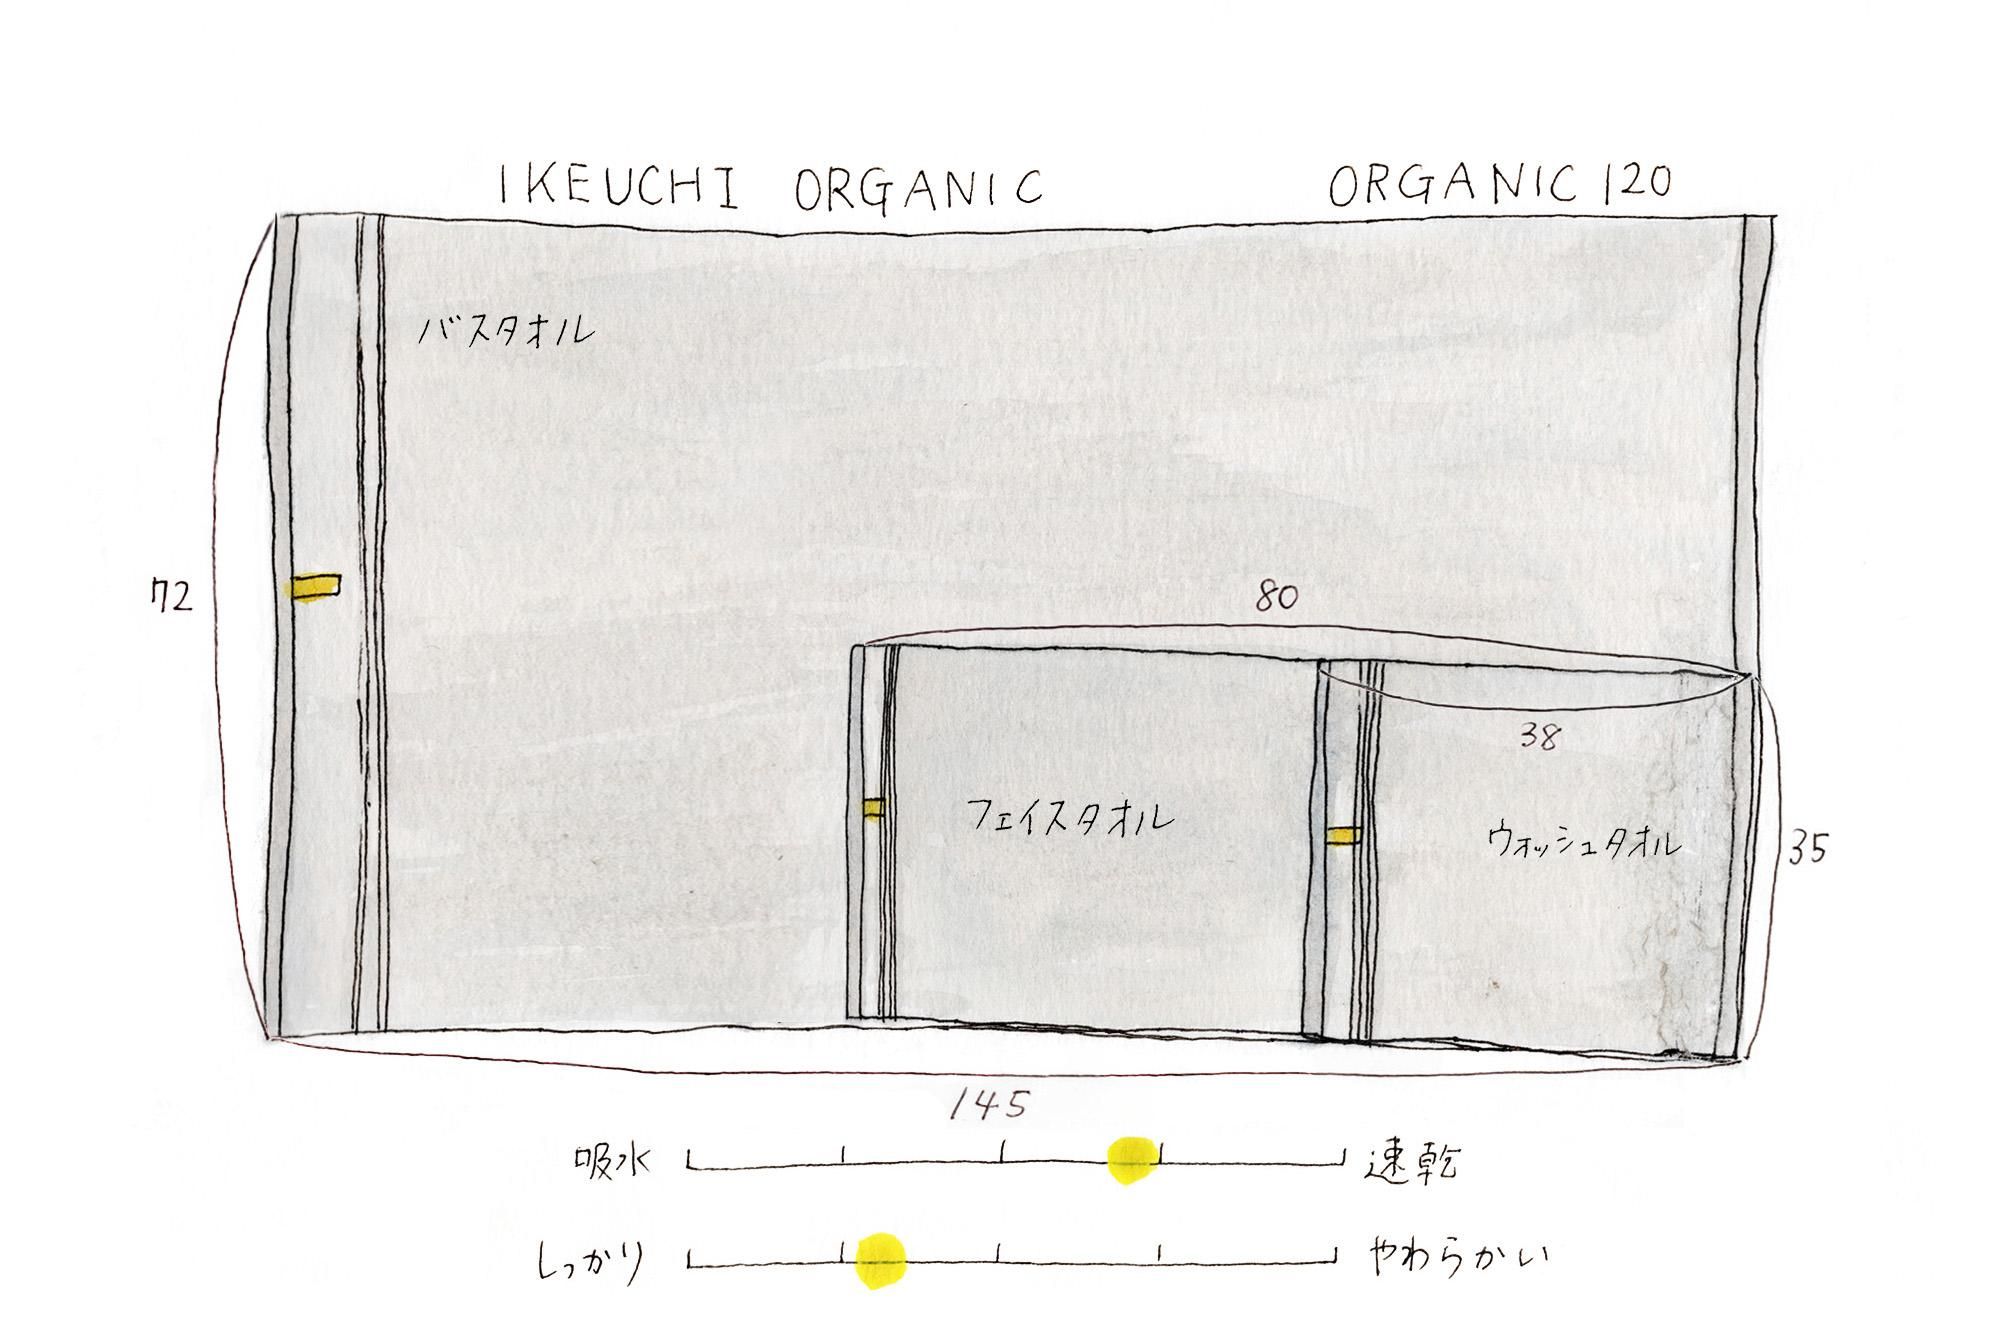 IKEUCHI ORGANIC
ORGANIC 120
バスタオル
72
80
38
フェイスタオル
ウォッシュタオル
35
145
吸水 速乾
しっかり やわらかい